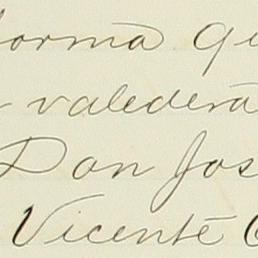 forma qu
valedera
Don Jos
Vicente